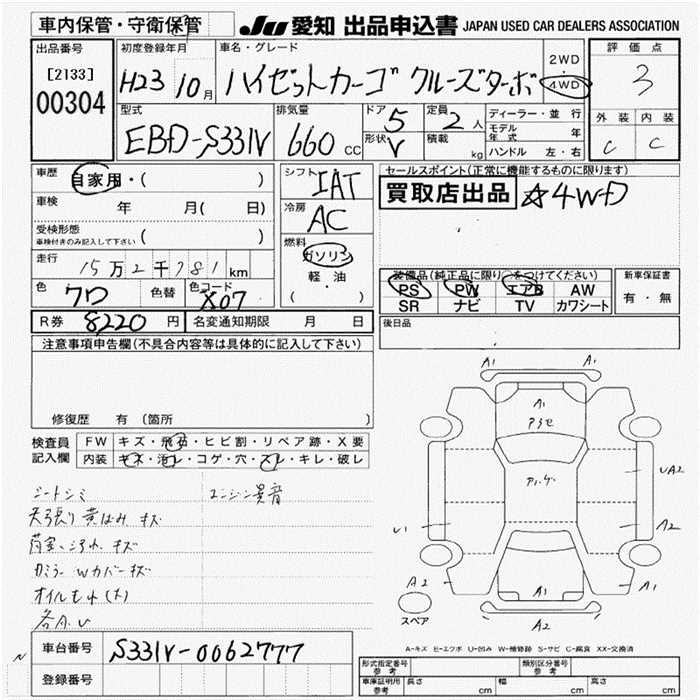 車内保管・守衛保管
JU 愛知 出品申込書 JAPAN USED CAR DEALERS ASSOCIATION
出品番号
[2133]
00304
初度登録年月
H23 10月
車名・グレード
ハイゼットカーゴ クルーズターボ
2WD
・
4WD
評価点
3
外装 内装
C C
型式
EBD-S331V
排気量
660 CC
ドア 5
形状 V
定員 2人
積載 kg
ディーラー・並行
モデル年式 年
ハンドル 左・右
車歴
自家用・( )
車検 年 月( 日)
受検形態
車検付きのみ記入して下さい ( )
走行
15万2千781km
色 クロ 色替 色コード X07
シフト IAT
冷房 AC
燃料
ガソリン
軽・油
( )
セールスポイント(正常に機能するものに限ります)
買取店出品 ☆4WD
装備品(純正品に限り○をつけてください)
PS PW エアB AW
SR ナビ TV カワシート
新車保証書
有・無
R券 8220円 名変通知期限 月 日
後日品
注意事項申告欄(不具合内容等は具体的に記入して下さい)
修復歴 有 (箇所 )
検査員
記入欄
FW キズ・飛石・ヒビ割・リペア跡・X要
内装 キズ・汚レ・コゲ・穴・スレ・キレ・破レ
シートシミ エンジン異音
天張り黄ばみ キズ
荷室 ヨゴレ キズ
カミラー Wカバーキズ
オイルもれ(大)
各A.U
A1 A1
A1
アンダー
UA2
U1
A2
A2
A1 A1
A2
スペア
A-キズ E-エクボ U-凹み W-補修跡 S-サビ C-腐食 XX-交換済
車台番号
S331V-0062777
登録番号
型式指定番号
参考
類別区分番号
参考
車庫証明用
参考
長さ cm 幅 cm 高さ cm